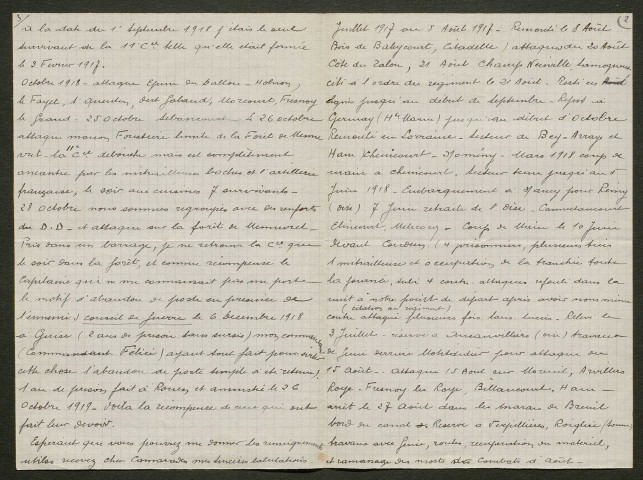 3
à la date du 1er Septembre 1918 j'étais le seul
survivant de la 11e Cie telle qu'elle était formée
le 3 Fevrier 1917.
Octobre 1918 - attaque Epine de Dallon - Holnon,
le Fayet, St Quentin, Morcourt, Fresnoy
le Grand - 25 Octobre - le 26 octobre
attaque maison Forestière limite de la Forêt de
la 11e Cie débouche mais est complètement
anéantie par les mitrailleuses boches et l'artillerie
française, le soir aux cuisines 7 survivants -
28 Octobre nous sommes regroupés avec des renforts
du D.D - et attaque sur la forêt de
Pris dans un barrage, je ne retrouve la Cie que
le soir dans la forêt, et comme récompense le
Capitaine qui ne me connaissait pas me porte
le motif d'abandon de poste en présence de
l'ennemi) conseil de guerre le 6 Decembre 1918
à Guise (2 ans de prison sans sursis) mon commandant
(Commandant Félici) ayant tout fait pour
cette chose l'abandon de poste simple a été retenu)
1 an de prison fait à Rouen et amnistié le 26
Octobre 1919 - Voila la recompense de ceux qui ont
fait leur devoir.
Esperant que vous pourrez me donner les renseignements
utiles recevez cher Camarade mes sincères salutations
2
Juillet 1917 au 8 Août 1917 - Remonté le 8 Août
Bois de Baleycourt, Citadelle) attaques du 20 Août
Côte du Talou, 21 Août Champ Neuville Samogneux
cité à l'ordre du régiment le 21 Août. Resté en
ligne jusqu'au début de Septembre - Repos à
Germay (Hte Marne) jusqu'au début d'Octobre
Remontée en Lorraine - Secteur de Bey - Array et
Han Chenicourt - Nomény - Mars 1918 coup de
main à Chenicourt. Secteur tenu jusqu'au 5
Juin 1918 - Embarquement à Nancy pour
(oise) 7 Juin retraite de l'Oise - Cannectancourt
Elincourt, - Coup de Main le 10 Juin
devant (4 prisonniers, plusieurs tués
1 mitrailleuse et occupation de la tranchée toute
la journée, subi 4 contre attaques refoulé dans la
nuit à notre point de départ après avoir nous même
(citation au régiment)
contre attaqué plusieurs fois sans succès. Relevé le
3 Juillet - (oise) travaux
de Génie derrière Montdidier pour attaque du
15 août - Attaque 15 Août sur Moreuil, Arvillers
Roye - Fresnoy les Roye, Billancourt - Ham -
arrêt le 27 Août dans les marais de Breuil
bord du canal - Reserve à Verpillières, Roiglise (Somme)
travaux avec Génie, routes, recuperation du materiel,
et ramassage des morts des Combats d'Août -